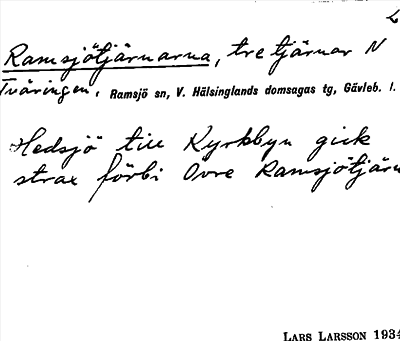 Ramsjötjärnarna, tre tjärnar N
Tväringen, Ramsjö sn, V. Hälsinglands domsagas tg, Gävleb. l.
Hedsjö till Kyrkbyn gick
strax förbi Övre Ramsjötjärn
LARS LARSSON 1934